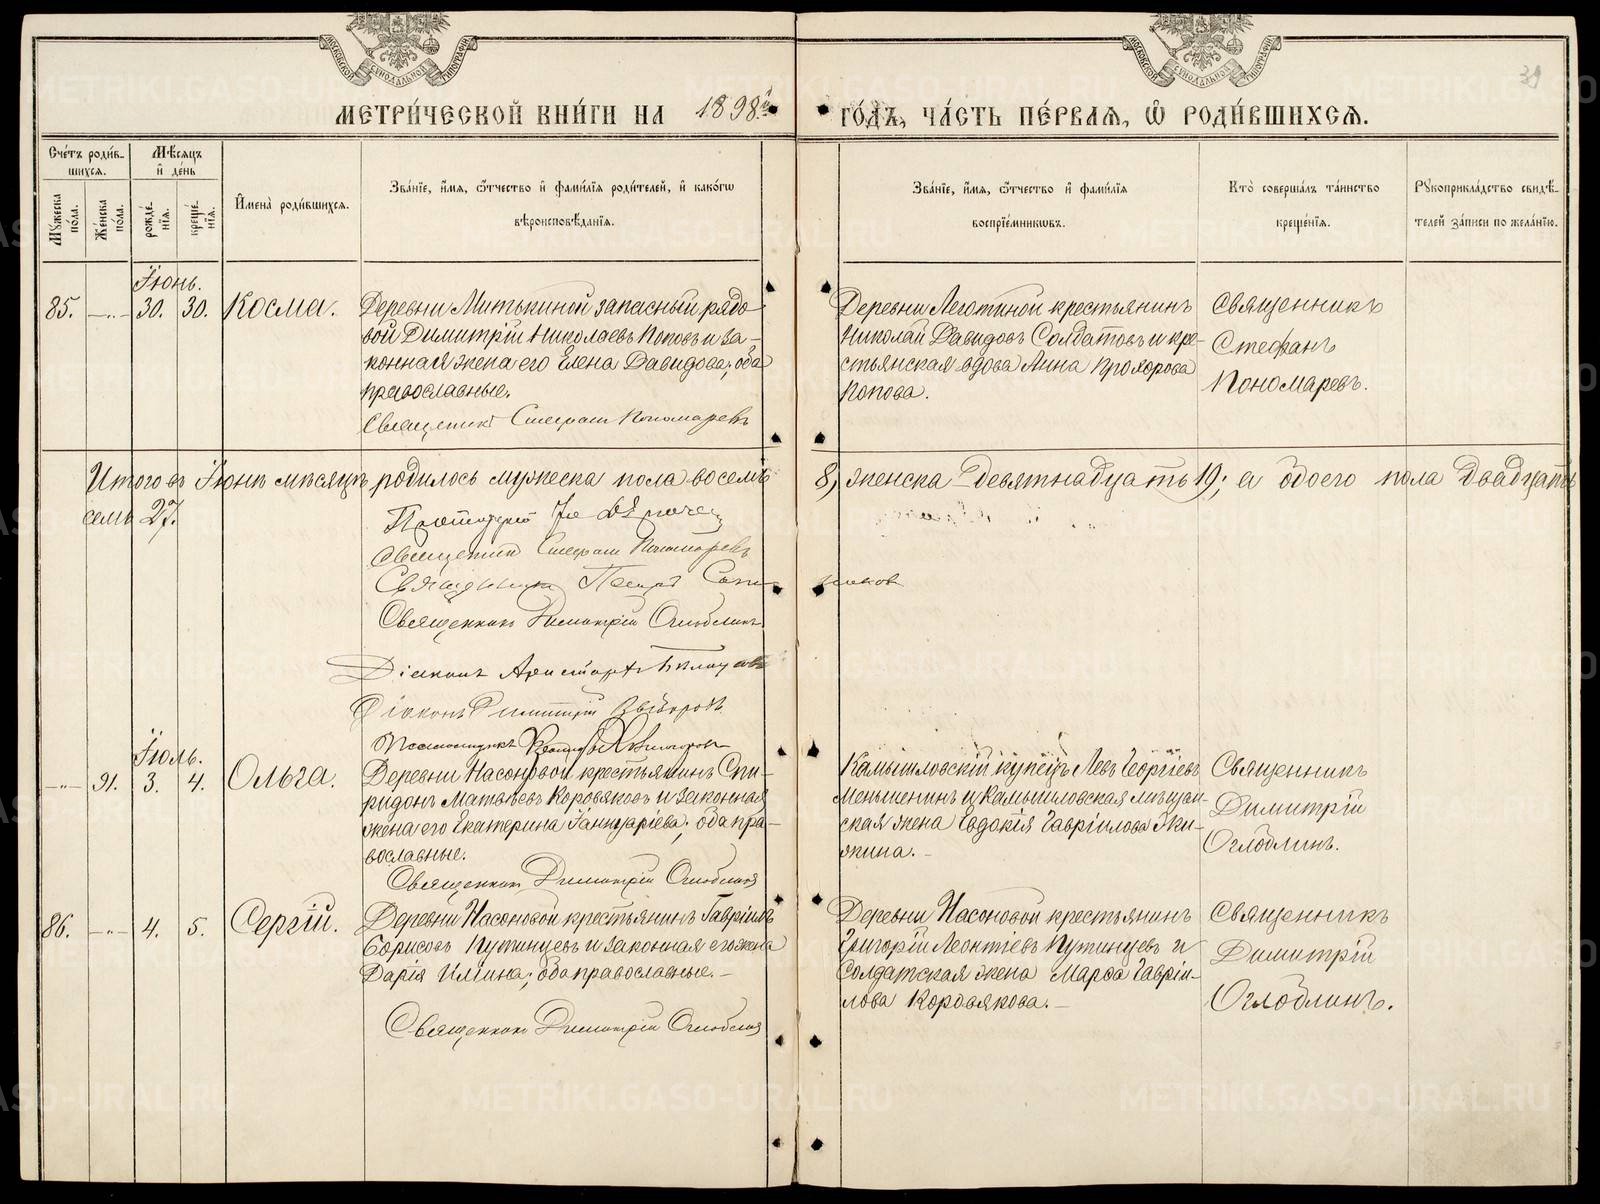 МЕТРИ́ЧЕСКОЙ КНИ́ГИ НА 1898й ГО́ДЪ, ЧА́СТЬ ПЕ́РВАЯ, Ѡ҆ РОДИ́ВШИХСЯ.
МОСКОВСКОЙ СѴНОДАЛЬНОЙ ТИПОГРАФІИ
МОСКОВСКОЙ СѴНОДАЛЬНОЙ ТИПОГРАФІИ
39
Сче́тъ роди́в-
шихся.
Мѣ́сяцъ
и҆ де́нь
Мꙋ́жеска
по́ла.
Же́нска
по́ла.
рожде́-
нїя.
креще́-
нїя.
И҆мена̀ роди́вшихся.
Зва́нїе, и҆́мя, ѻ҆́тчество и҆ фами́лїя роди́телей, и҆ како́гѡ
вѣроисповѣ́данїя.
Зва́нїе, и҆́мя, ѻ҆́тчество и҆ фами́лїя
воспрїе́мникѡвъ.
Кто̀ соверша́лъ та́инство
креще́нїя.
Рꙋкоприкла́дство свидѣ́-
телей за́писи по жела́нїю.
Іюнь.
85. —"— 30. 30. Косма.
Деревни Митькиной запасный рядо-
вой Димитрій Николаевъ Поповъ и за-
конная жена его Елена Давидова; оба
православные.
Священникъ Стефанъ Пономаревъ
Деревни Леготиной крестьянинъ
Николай Давидовъ Солдатовъ и кре-
стьянская вдова Анна Прохорова
Попова.
Священникъ
Стефанъ
Пономаревъ.
Итого въ Іюнѣ мѣсяцѣ родилось мужеска пола восемь 8, женска девятнадцать 19; а обоего пола двадцать
семь 27.
Протоіерей
Священникъ Стефанъ Пономаревъ
Священникъ Петръ
Священникъ Димитрій Оглоблинъ
Діаконъ Аристархъ
Діаконъ Димитрій
Псаломщикъ
Іюль.
—"— 91. 3. 4. Ольга.
Деревни Насоновой крестьянинъ Спи-
ридонъ Матвѣевъ Коровяковъ и законная
жена его Екатерина Іаннуаріева; оба пра-
вославные.
Священникъ Димитрій Оглоблинъ
Камышловскій купецъ Левъ Георгіевъ
Меньшенинъ и Камышловская мѣщан-
ская жена Евдокія Гавріилова
Священникъ
Димитрій
Оглоблинъ.
86. —"— 4. 5. Сергій.
Деревни Насоновой крестьянинъ Гавріилъ
Борисовъ Путинцевъ и законная его жена
Дарія Иліина; оба православные. —
Священникъ Димитрій Оглоблинъ
Деревни Насоновой крестьянинъ
Григорій Леонтіевъ Путинцевъ и
Солдатская жена Марѳа Гавріи-
лова Коровякова. —
Священникъ
Димитрій
Оглоблинъ.
METRIKI.GASO-URAL.RU